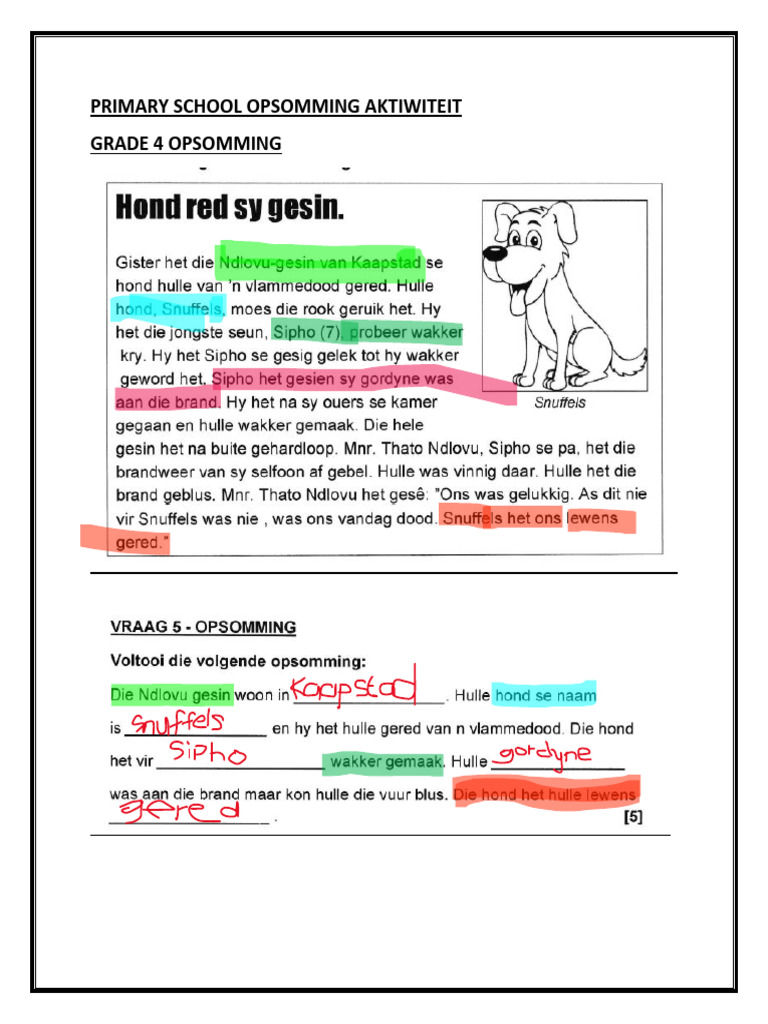 PRIMARY SCHOOL OPSOMMING AKTIWITEIT
GRADE 4 OPSOMMING
Hond red sy gesin.
Gister het die Ndlovu-gesin van Kaapstad se
hond hulle van 'n vlammedood gered. Hulle
hond, Snuffels, moes die rook geruik het. Hy
het die jongste seun, Sipho (7), probeer wakker
kry. Hy het Sipho se gesig gelek tot hy wakker
geword het. Sipho het gesien sy gordyne was
aan die brand. Hy het na sy ouers se kamer
gegaan en hulle wakker gemaak. Die hele
gesin het na buite gehardloop. Mnr. Thato Ndlovu, Sipho se pa, het die
brandweer van sy selfoon af gebel. Hulle was vinnig daar. Hulle het die
brand geblus. Mnr. Thato Ndlovu het gesê: "Ons was gelukkig. As dit nie
vir Snuffels was nie , was ons vandag dood. Snuffels het ons lewens
gered."
Snuffels
VRAAG 5 - OPSOMMING
Voltooi die volgende opsomming:
Die Ndlovu gesin woon in Kaapstad. Hulle hond se naam
is Snuffels en hy het hulle gered van n vlammedood. Die hond
het vir Sipho wakker gemaak. Hulle gordyne
was aan die brand maar kon hulle die vuur blus. Die hond het hulle lewens
gered.
[5]